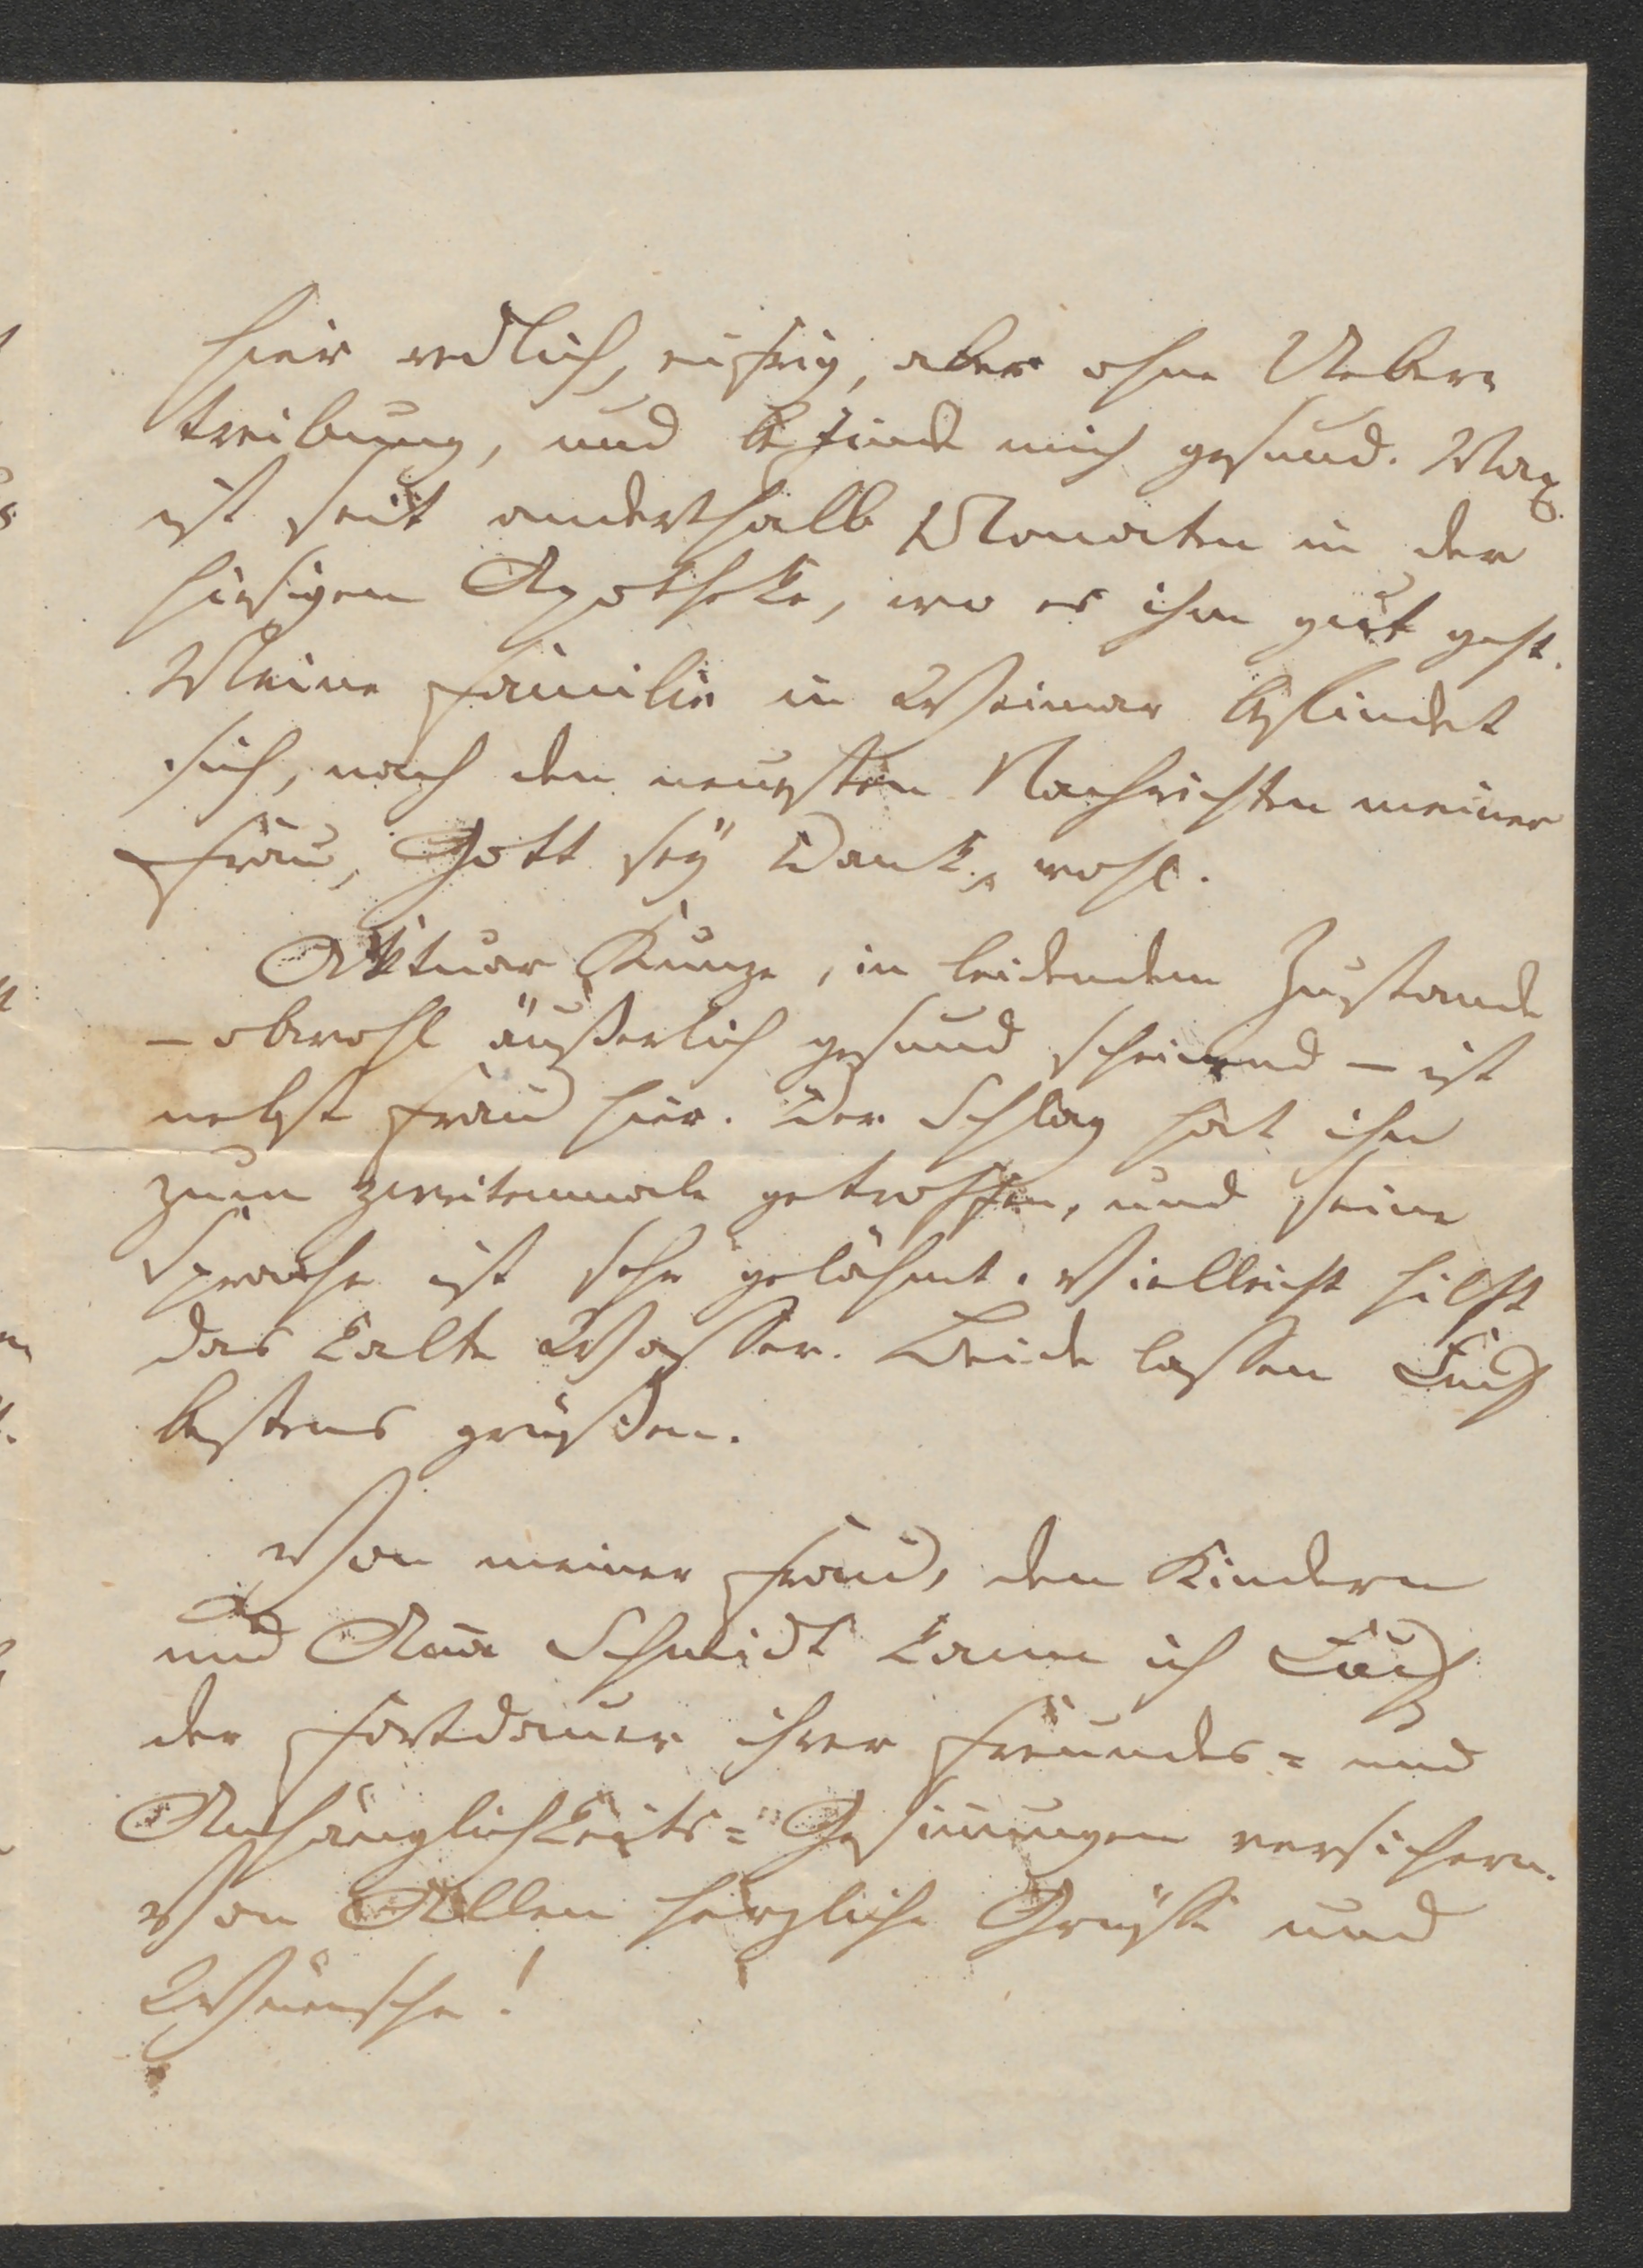 hier redlich, eifrig, aber ohne Ueber=
treibung, und befinde mich gesund. Max
ist seit anderthalb Monaten in der
hiesigen Apotheke, wo es ihm gut geht.
Meine Familie in Weimar befindet
sich, nach den neuesten Nachrichten meiner
Frau, Gott sey Dank, wohl.
Aktuar Kunze, in leidendem Zustande
– obwohl äußerlich gesund scheinend – ist
nebst Frau hier. Der Schlag hat ihn
zum zweitenmale getroffen, und seine
Sprache ist sehr gelähmt. Vielleicht hilft
das kalte Wasser. Beide lassen Euch
bestens grüßen.
Von meiner Frau, den Kindern
und Schmidt kann ich Euch
der Fortdauer ihrer Freundes= und
Anhänglichkeits=Gesinnungen versichern.
Von Allen herzliche Grüße und
Wünsche!